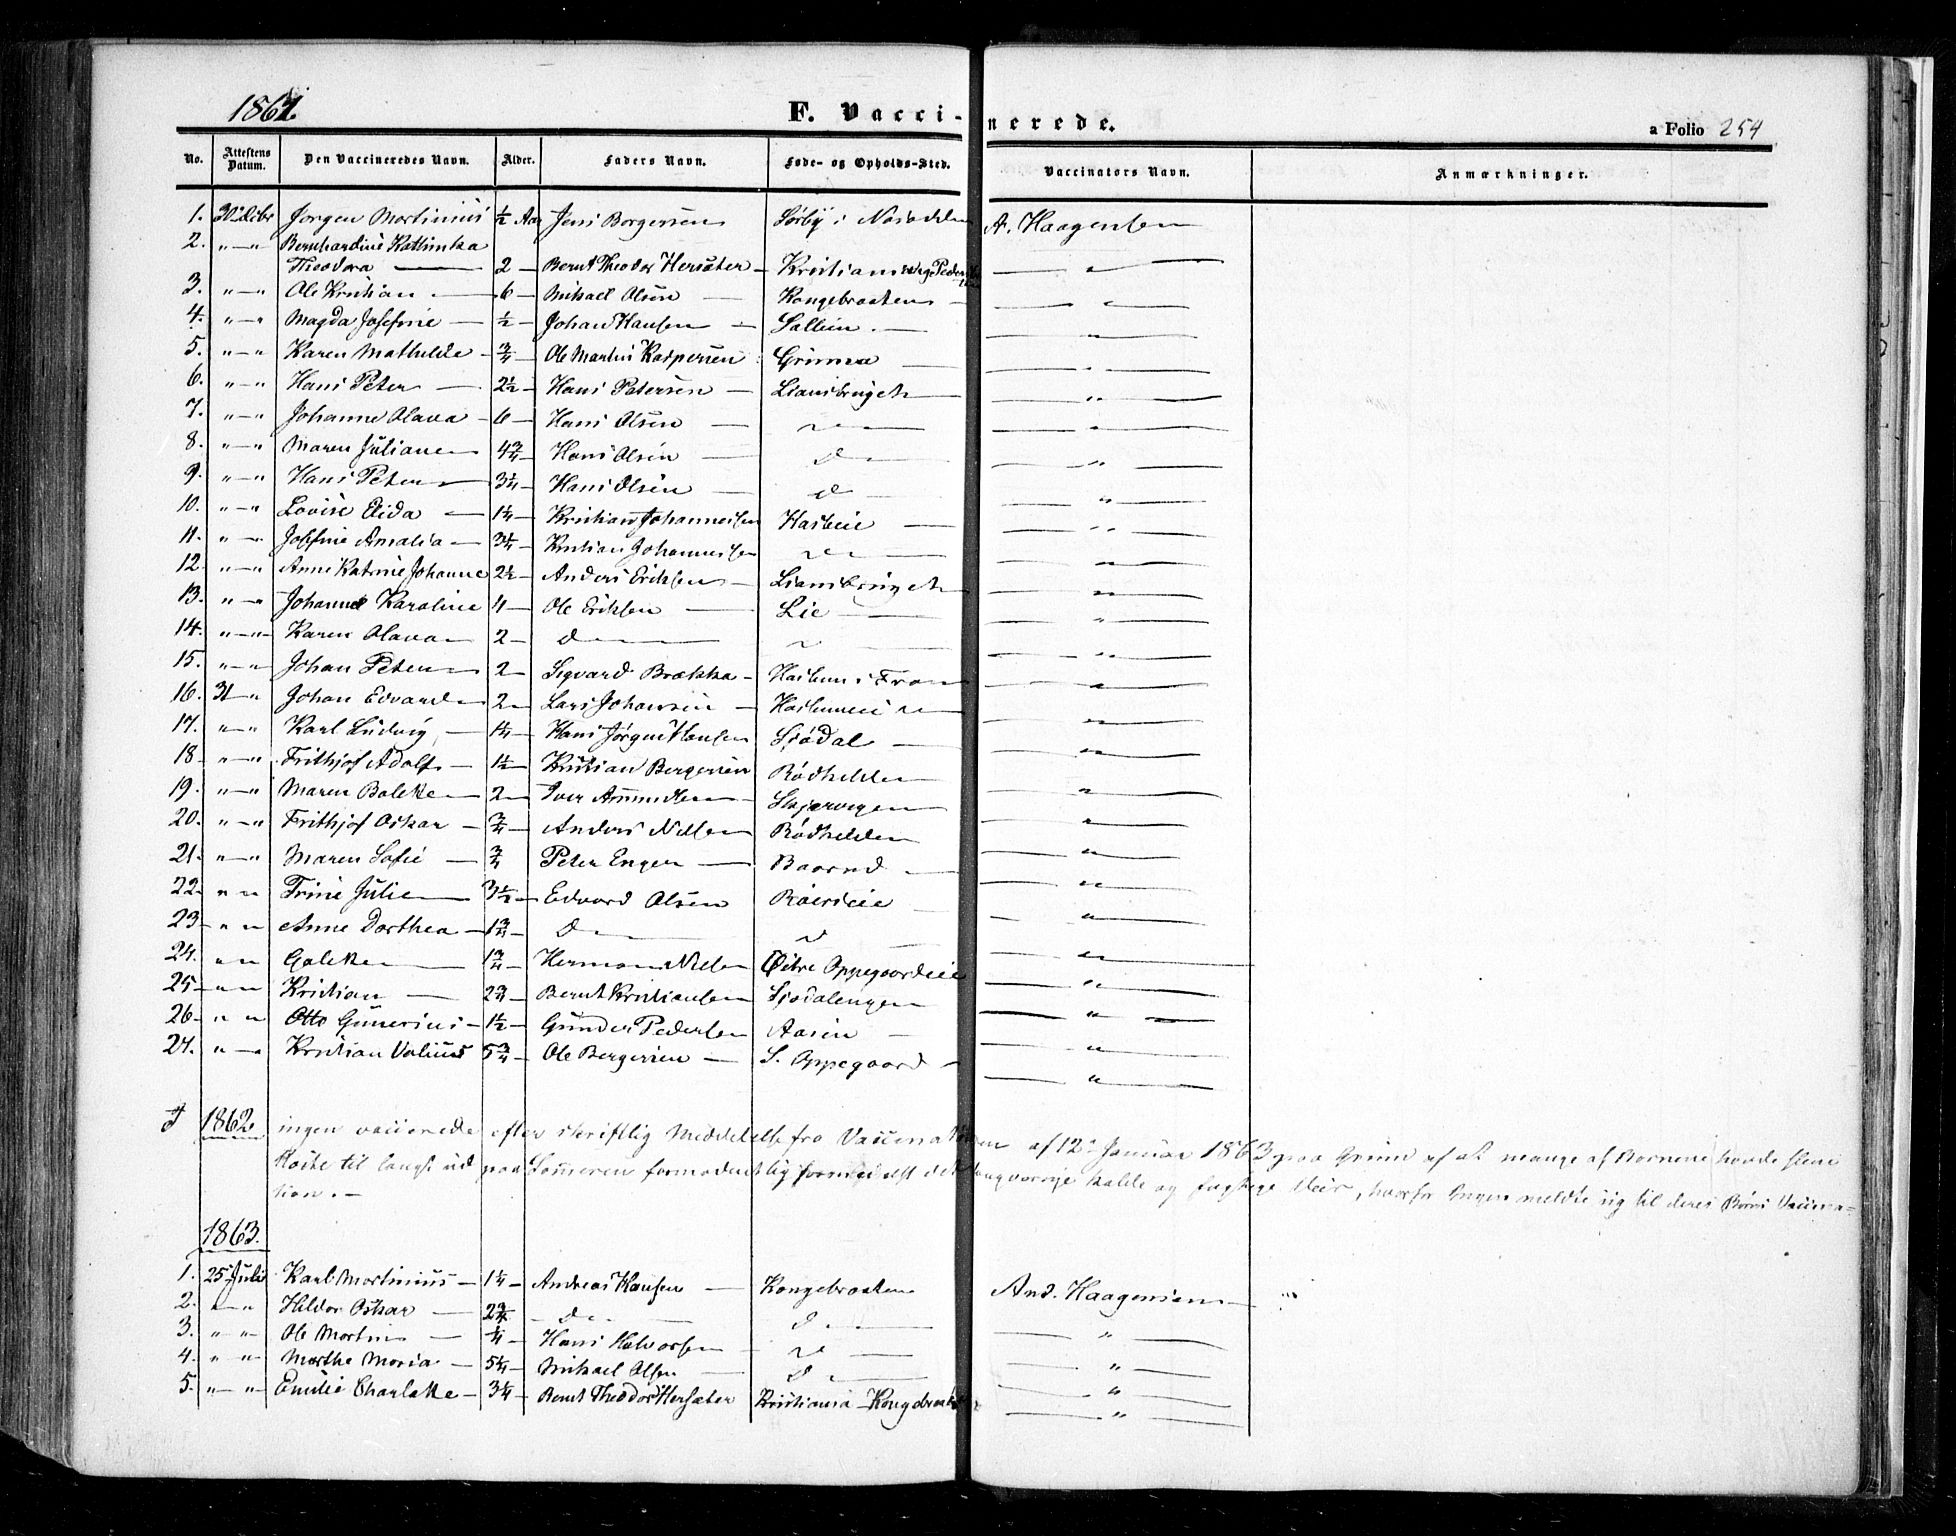 1861.
F. Vaccinerede.
a Folio 254
No. Attestens Datum. Den Vaccineredes Navn. Alder. Faders Navn. Føde- og Opholds-Sted. Vaccinators Navn. Anmærkninger.
1. Jørgen Martinius ½ Aar Jens Borgersen Sørby i A. Haagensen
2. " — " Bernhardine Kathinka
Theodora — 2 — Bernt Theodor Hersæter — — " —
3. " — " Ole Kristian — 6 — Mikael Olsen — Kongebraaten — — " —
4. " — " Magda Josefine — ½ — Johan Hansen — — " —
5. " — " Karen Mathilde — ¾ — Ole Martin Kaspersen Grimsa — " —
6. " — " Hans Peter — 2½ — Hans Petersen — Liansbruget — — " —
7. " — " Johanne Olava — 6 — Hans Olsen — — " —
8. " — " Maren Juliane 4¾ — Hans Olsen — d — — " —
9. " — " Hans Peter — 3¼ — Hans Olsen — d — — " —
10. " — " Lovise Elida — 1¼ — Kristian Johannessen — — " —
11. " — " Josefine Amalia — 3¼ — Kristian Johannessen — " —
12. " — " Anne Katrine Johanne 2½ — Anders Eriksen — Liansbruget — " —
13. " — " Johanne Karoline 4 — Ole Eriksen — Lie — — " —
14. " — " Karen Olava — 2 — d — — " —
15. " — " Johan Peter — 2 — Sigvard Brække — — " —
16. 31 — " Johan Edvard 2 — Lars Johansen — — " —
17. " — " Karl Ludvig — 1¼ — Hans Jørgen Hansen Sjødal — — " —
18 — " — " Frithjof Adolf — 1½ — Kristian Bergersen Rødhelden — " —
19. " — " Maren Bolette — 2 — Iver Amundsen — — " —
20. " — " Frithjof Oskar — ¾ — Anders Nilsen Rødhelden — " —
21. " — " Maren Sofie — ¾ Peter Engen — — " —
22. " " Trine Julie — 3½ — Edvard Olsen — " —
23 — " " Anne Dorthea — 1¾ — d — — " —
24. " " Golette — 1¾ — Herman Nilsen Østre Oppegaardeie — " —
25 — " " Kristian — 2¾ — Bernt Kristiansen Sjødalengen — " —
26 — " " Otto Gunerius — 1½ — Gunder Pedersen Aasen — — " —
27. " — " Kristian 5¾ — Ole Bergersen — S. Oppegaard — — " —
I 1862. ingen vaccinerede efter skriftlig Meddelelse fra Vaccinatøren af 12te Januar 1863, paa Grund af at mange af Børnene havde slem
Hoste til langt ud paa Sommeren formodentlig formedelst det langvarige kolde og fugtige Veir, hvorfor Ingen meldte sig til deres Børns Vaccina=
tion. —
1863.
1. 25 Juli Karl Martinius — 1¼ — Andreas Hansen — Kongebraaten And. Haagensen —
2. " — " Hildor Oskar — 2¾ — d — d —
3. " " Ole Martin — ¼ — Hans Halvorsen — — " —
4. " " Marthe Maria — 5¼ — Mikael Olsen — d — — " —
5. " — " Emilie Charlotte — 3¼ — Bernt Theodor Hersæter Kristiania — Kongebraaten — " —
— " —